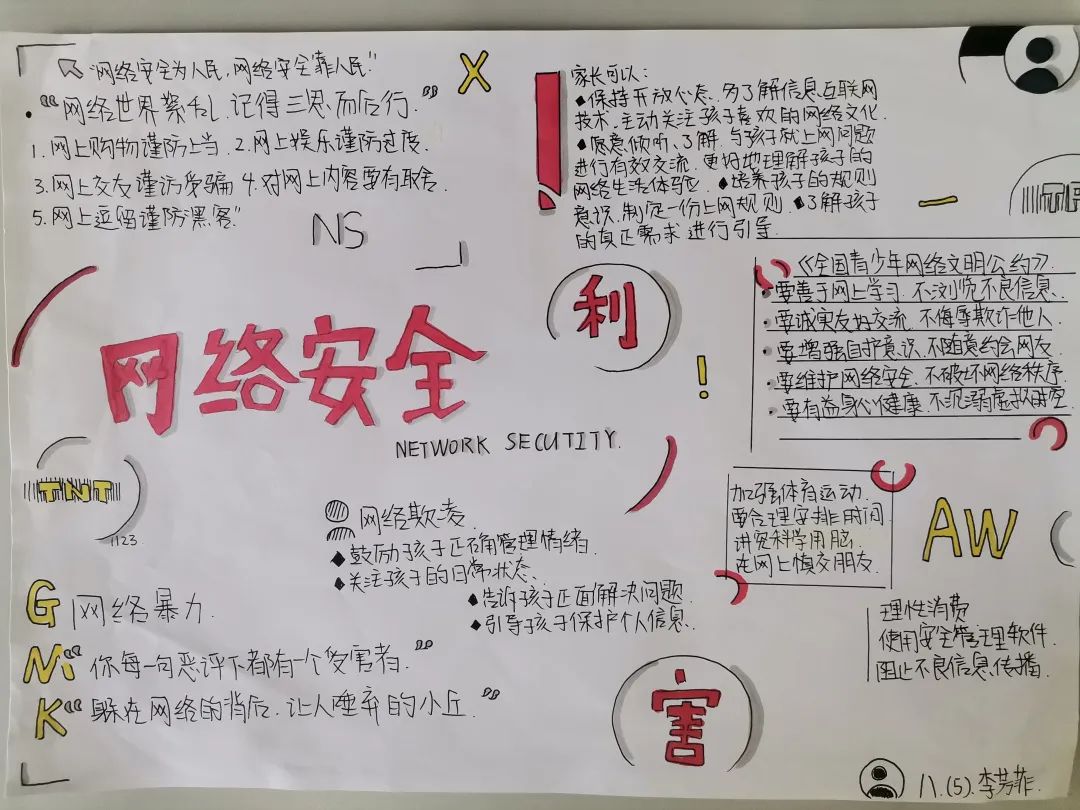 “网络安全为人民,网络安全靠人民”
“网络世界繁乱.记得三思而后行.”
1.网上购物谨防上当.2.网上娱乐谨防过度.
3.网上交友谨防受骗 4.对网上内容要有取舍.
5.网上逗留谨防黑客”
NS
X
家长可以:
◆保持开放心态.多了解信息互联网
技术.主动关注孩子喜欢的网络文化.
◆愿意倾听、了解.与孩子就上网问题
进行有效交流.更好地理解孩子的
网络生活体验.◆培养孩子的规则
意识.制定一份上网规则.◆了解孩子
的真正需求进行引导.
网络安全
NETWORK SECUTITY.
利
!
《全国青少年网络文明公约》.
·要善于网上学习.不浏览不良信息.
·要诚实友好交流.不侮辱欺诈他人.
·要增强自护意识.不随意约会网友.
·要维护网络安全.不破坏网络秩序.
·要有益身心健康.不沉溺虚拟时空.
TNT
1123.
网络欺凌.
◆鼓励孩子正确管理情绪.
◆关注孩子的日常状态.
◆告诉孩子正面解决问题.
◆引导孩子保护个人信息.
加强体育运动.
要合理安排时间.
讲究科学用脑.
在网上慎交朋友.
AW
理性消费
使用安全管理软件.
阻止不良信息传播.
G 网络暴力.
M “你每一句恶评下都有一个受害者.”
K “躲在网络的背后.让人唾弃的小丘.”
害
八.(5).李芳菲.